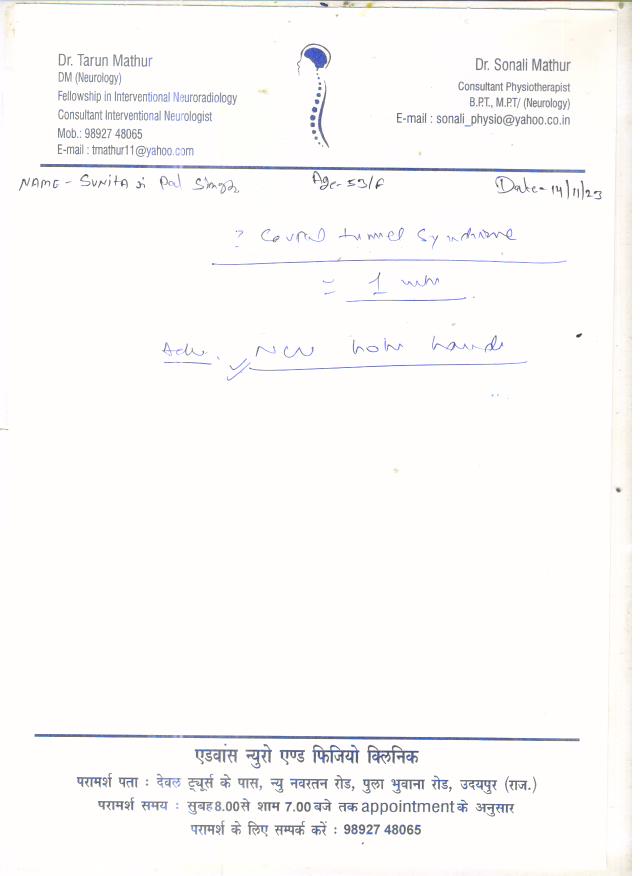 Dr. Tarun Mathur
DM (Neurology)
Fellowship in Interventional Neuroradiology
Consultant Interventional Neurologist
Mob.: 98927 48065
E-mail : tmathur11@yahoo.com
Dr. Sonali Mathur
Consultant Physiotherapist
B.P.T., M.P.T/ (Neurology)
E-mail : sonali_physio@yahoo.co.in
NAME - SUNITA Ji Pal Singh Age - 53/F Date - 14/11/23
? Carpal tunnel Syndrome
1
Adv. NCV both hands
एडवांस न्युरो एण्ड फिजियो क्लिनिक
परामर्श पता : देवल ट्यूर्स के पास, न्यु नवरतन रोड, पुला भुवाना रोड, उदयपुर (राज.)
परामर्श समय : सुबह 8.00 से शाम 7.00 बजे तक appointment के अनुसार
परामर्श के लिए सम्पर्क करें : 98927 48065